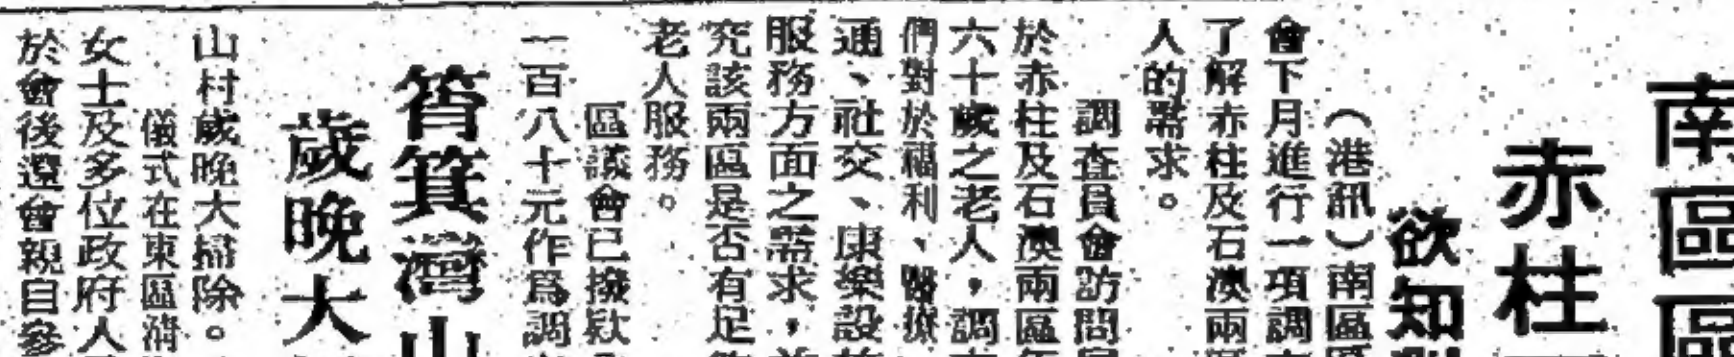 南區
赤柱
欲知
（港訊）南區
會下月進行一項調
了解赤柱及石澳兩
人的需求。
調查員會訪問
於赤柱及石澳兩區
六十歲之老人，調
們對於福利、醫療
通、社交、康樂設
服務方面之需求，
究該兩區是否有足
老人服務。
區議會已撥款
一百八十元作爲調
筲箕灣山
歲晚大
山村歲晚大掃除。
儀式在東區
女士及多位政府人
於會後還會親自參